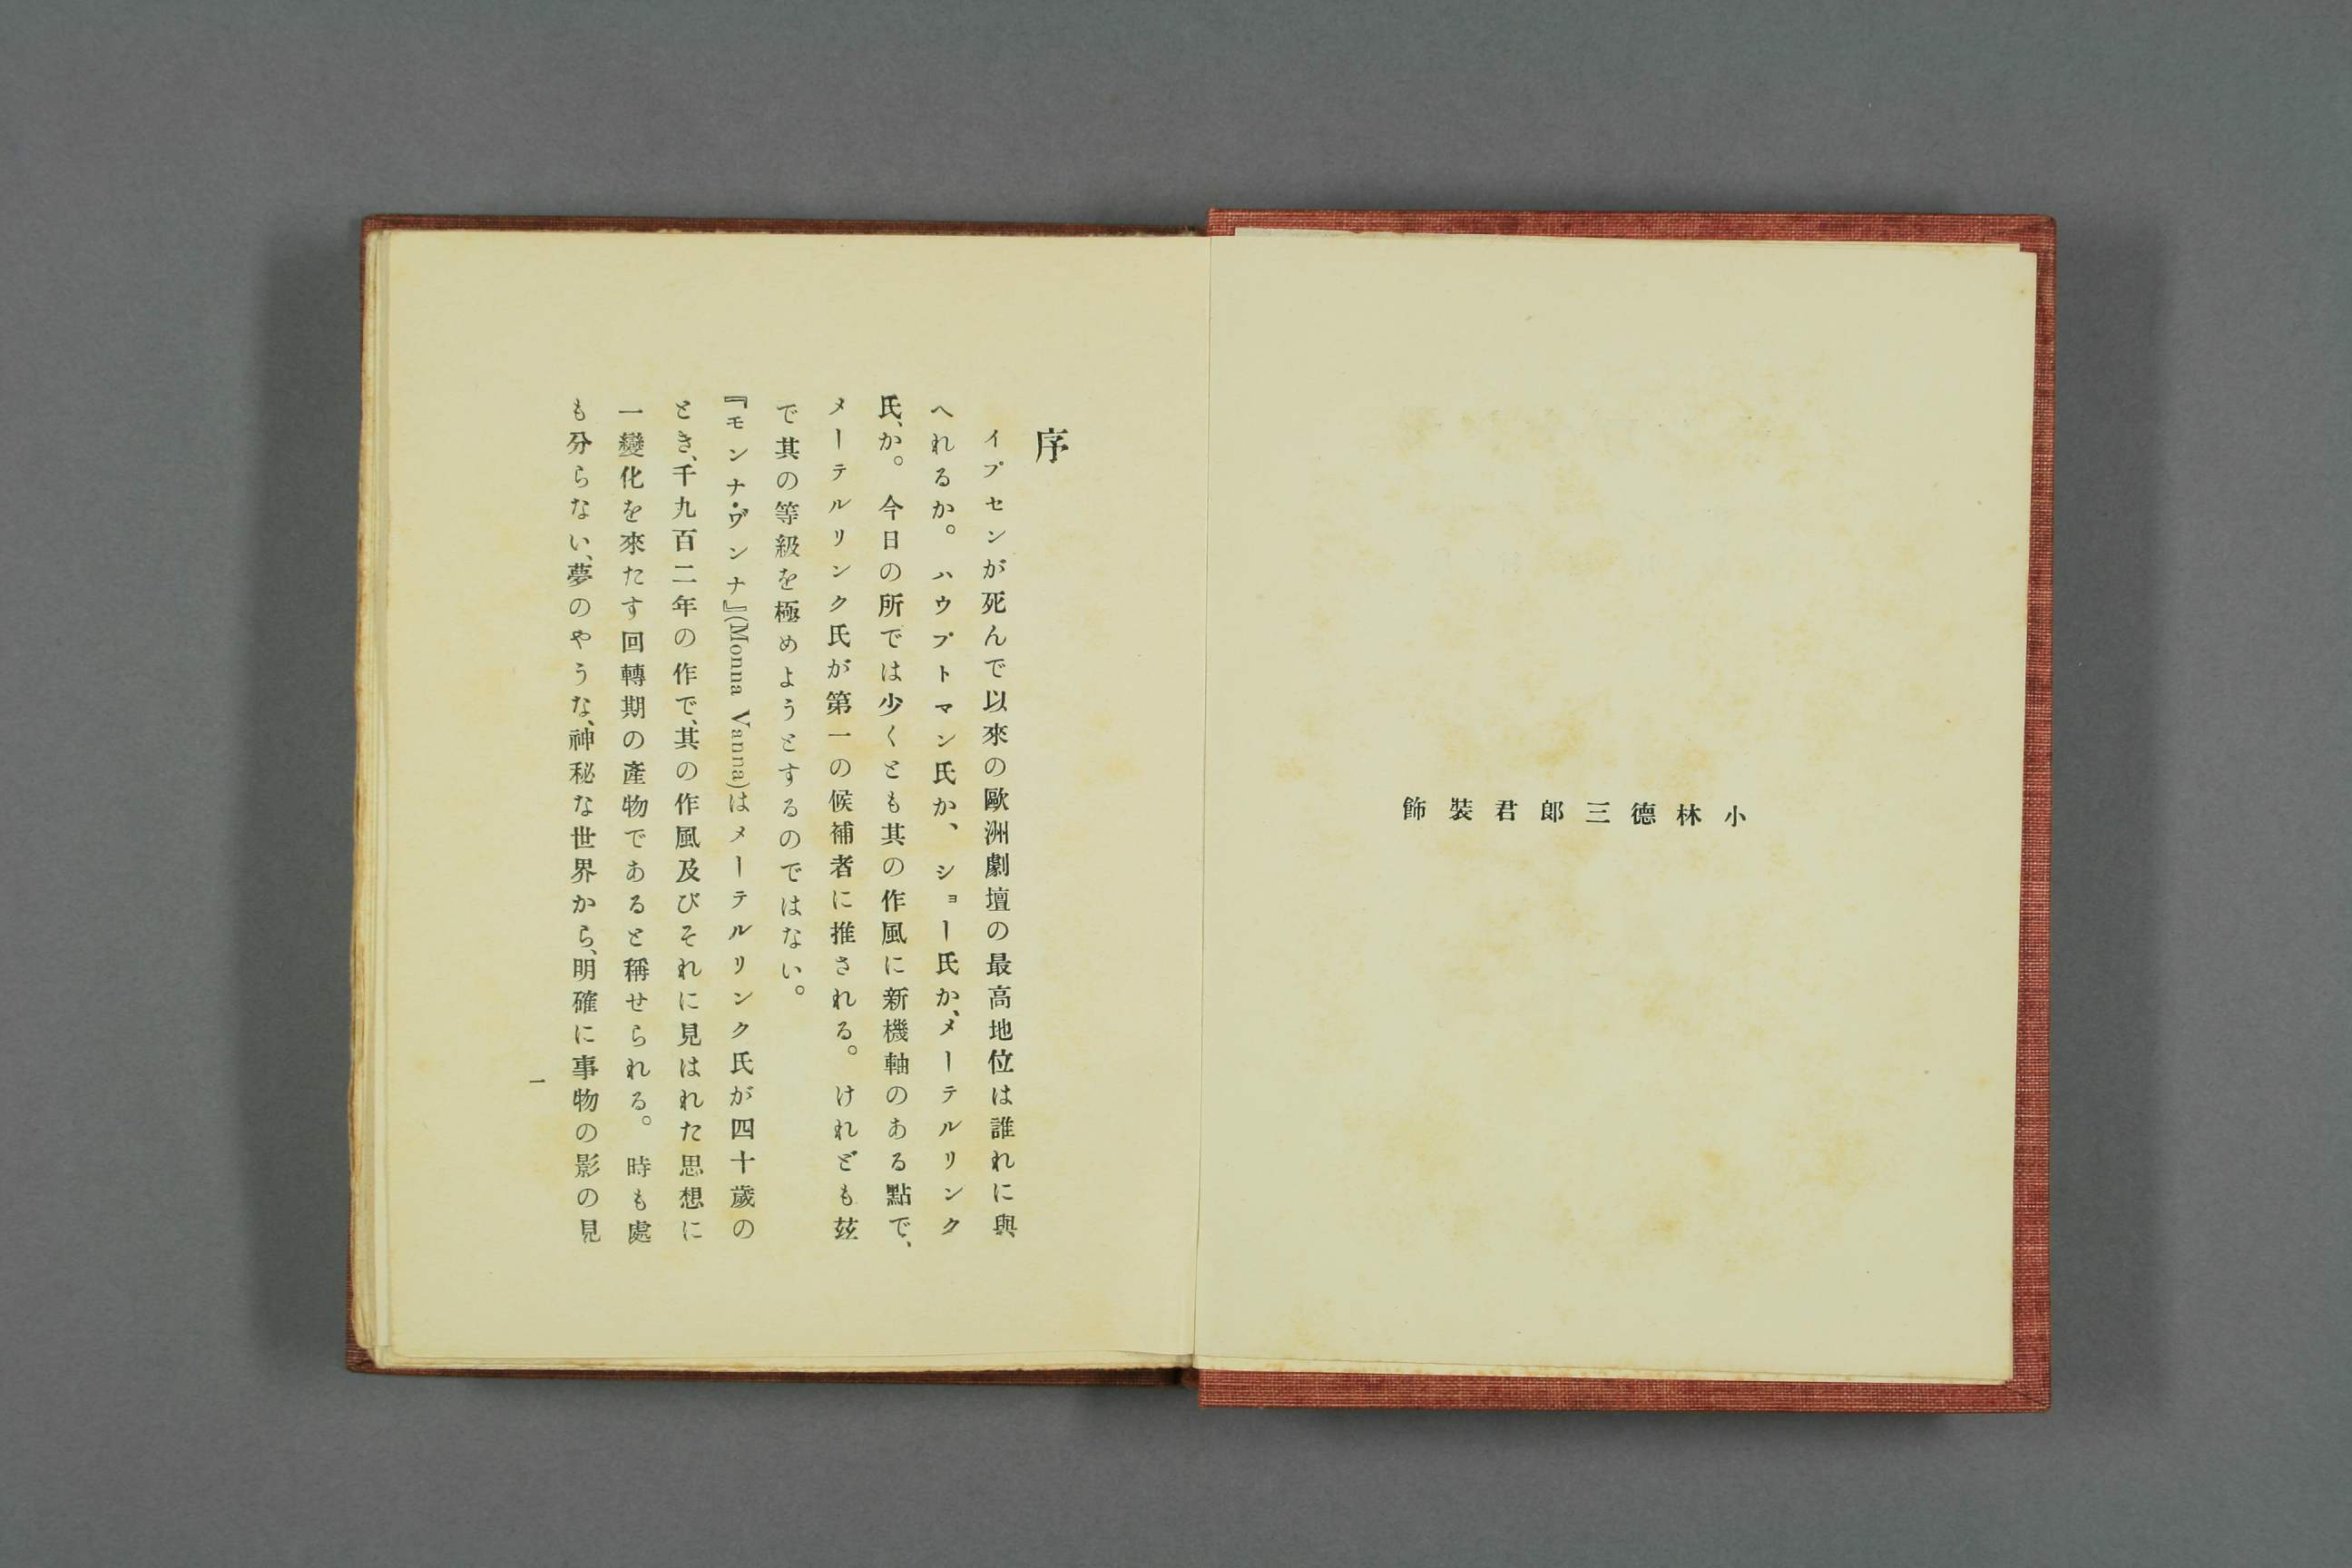 小林德三郎君裝飾
序
イプセンが死んで以來の歐洲劇壇の最高地位は誰れに與
へれるか。ハウプトマン氏か、ショー氏か、メーテルリンク
氏、か。今日の所では少くとも其の作風に新機軸のある點で、
メーテルリンク氏が第一の候補者に推される。けれども玆
で其の等級を極めようとするのではない。
『モンナ・ヴンナ』(Monna Vanna)はメーテルリンク氏が四十歲の
とき、千九百二年の作で、其の作風及びそれに見はれた思想に
一變化を來たす回轉期の產物であると稱せられる。時も處
も分らない、夢のやうな、神秘な世界から、明確に事物の影の見
一